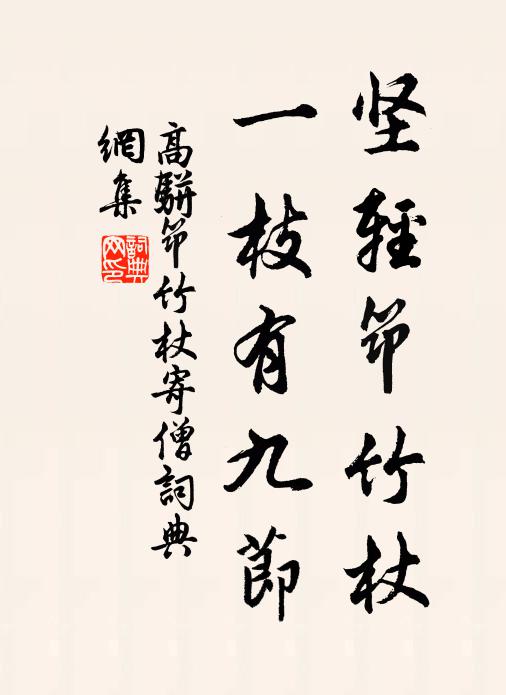 坚輕筇竹杖
一枝有九節
高駢筇竹杖寄僧詞典
網集
詞典
网印